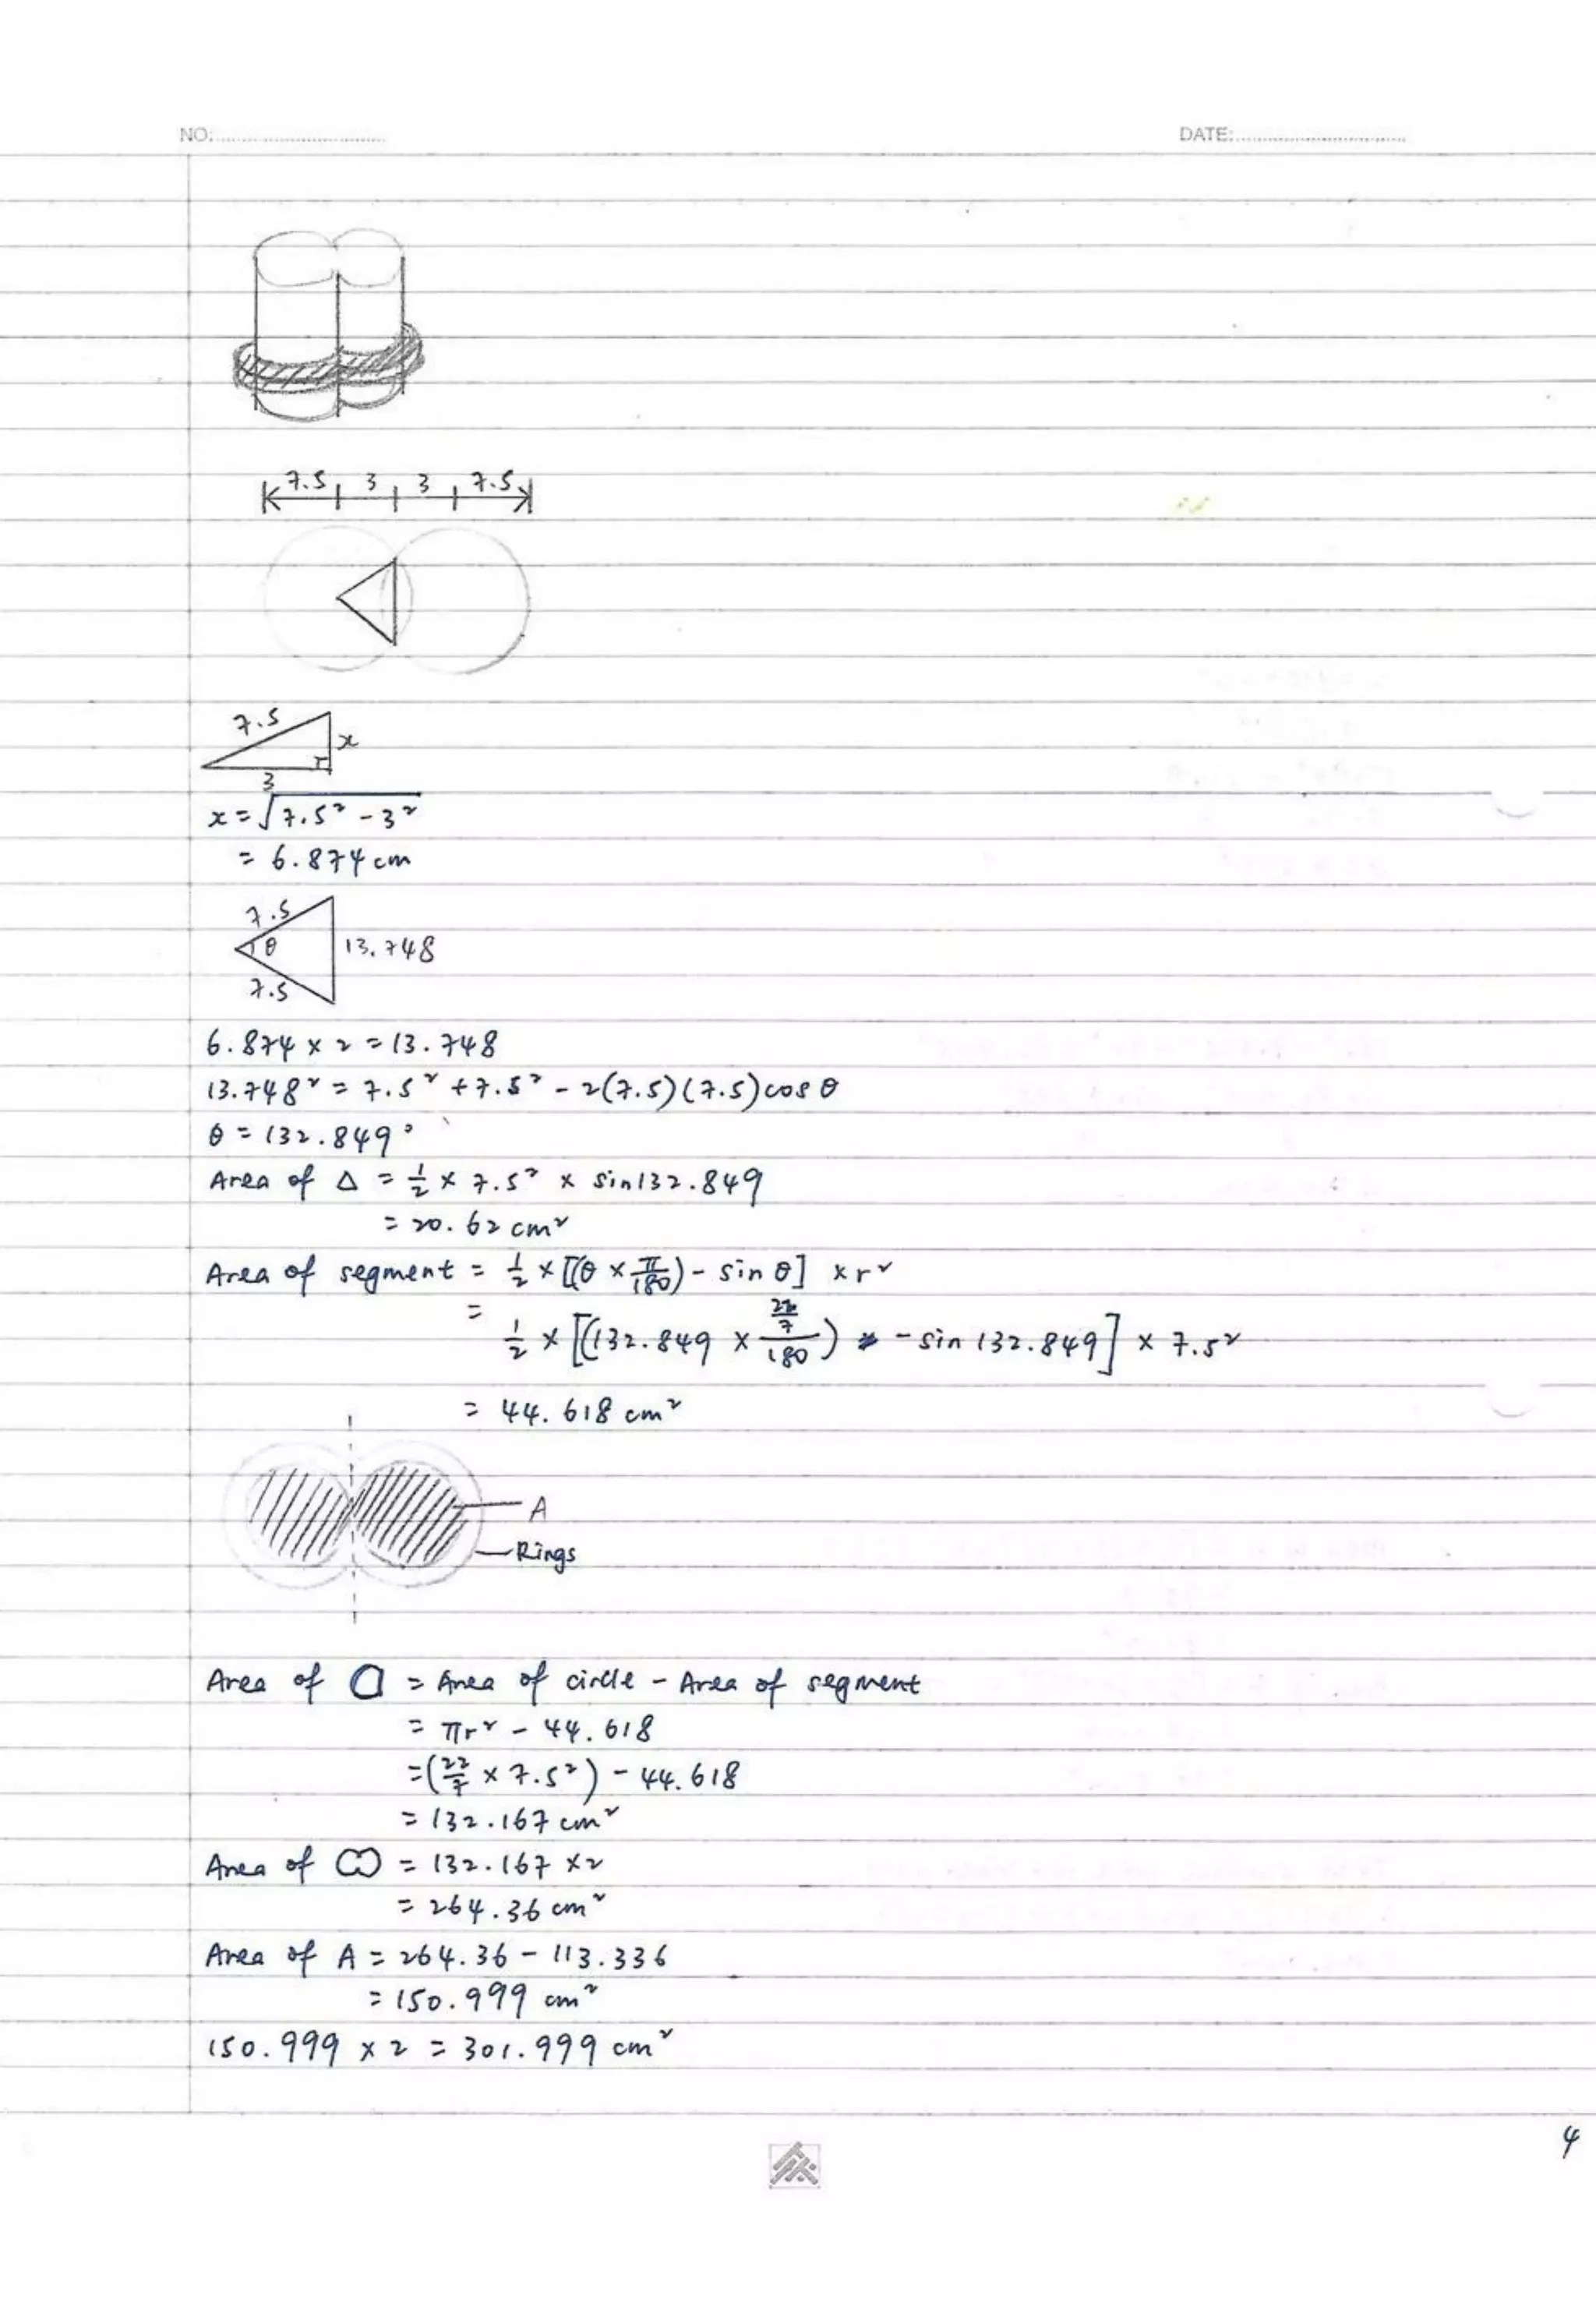 NO:
DATE:
7.5 3 3 7.5
7.5
x
3
x = √7.5² - 3²
= 6.874 cm
7.5
θ
13.748
7.5
6.874 × 2 = 13.748
13.748² = 7.5² + 7.5² - 2(7.5)(7.5)cos θ
θ = 132.849°
Area of Δ = 1/2 × 7.5² × sin132.849
= 20.62 cm²
Area of segment = 1/2 × [(θ × π/180) - sin θ] × r²
= 1/2 × [(132.849 × 22/7/180) - sin 132.849] × 7.5²
= 44.618 cm²
A
Rings
Area of = Area of circle - Area of segment
= πr² - 44.618
= (22/7 × 7.5²) - 44.618
= 132.167 cm²
Area of = 132.167 × 2
= 264.36 cm²
Area of A = 264.36 - 113.336
= 150.999 cm²
150.999 × 2 = 301.999 cm²
4